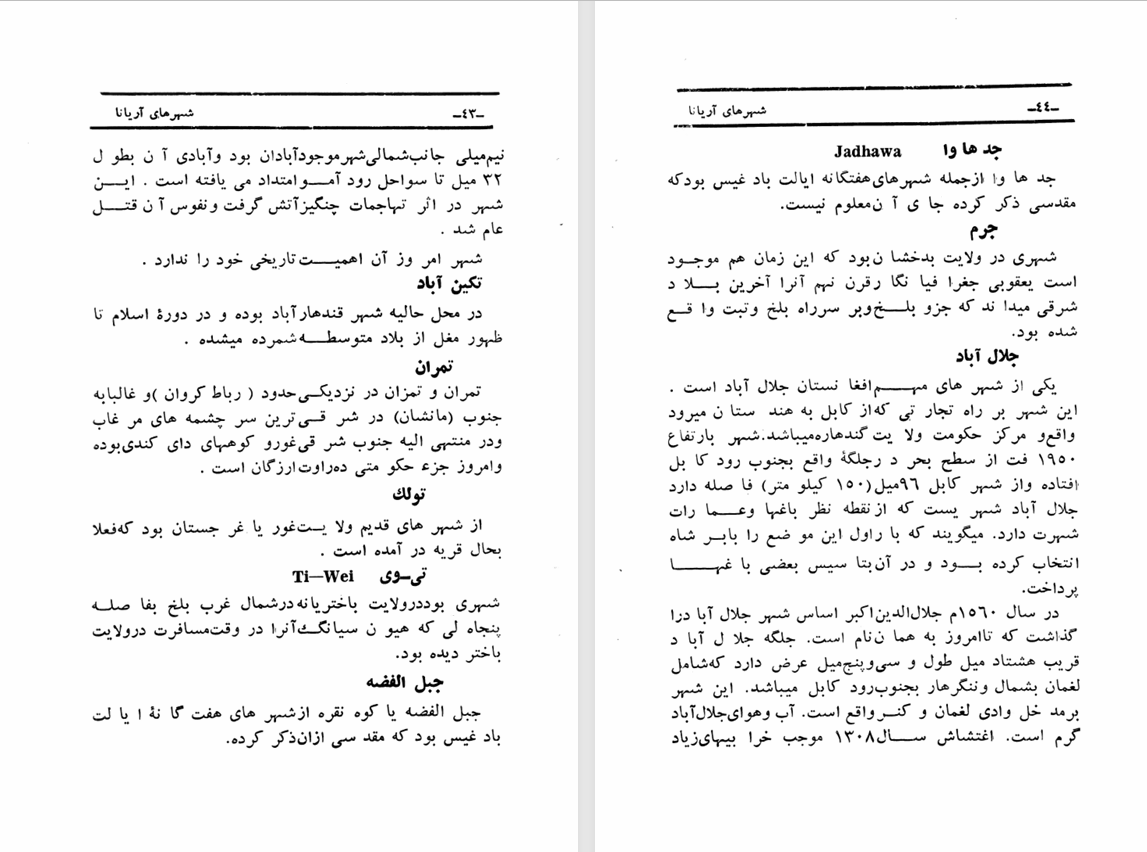 ـ٤٣ـ شهرهای آریانا
نیم‌میلی جانب‌شمالی‌شهر موجودآبادان بود وآبادی آن بطول
۳۲ میل تا سواحل رود آمو امتداد می یافته است . این
شهر در اثر تهاجمات چنگیزآتش گرفت و نفوس آن قتل
عام شد .
شهر امروز آن اهمیت تاریخی خود را ندارد .
تکین آباد
در محل حالیه شهر قندهارآباد بوده و در دورهٔ اسلام تا
ظهور مغل از بلاد متوسطه شمرده میشده .
تمران
تمران و تمزان در نزدیکی‌حدود ( رباط کروان )و غالبابه
جنوب (مانشان) در شرقی‌ترین سر چشمه های مرغاب
ودر منتهی الیه جنوب شرقی‌غورو کوههای دای کندی‌بوده
وامروز جزء حکومتی ده‌راوت‌ارزگان است .
تولك
از شهر های قدیم ولایت‌غور یا غرجستان بود که‌فعلا
بحال قریه در آمده است .
تی‌ـوی Ti—Wei
شهری بوددرولایت باختریانه‌درشمال غرب بلخ بفاصله
پنجاه لی که هیون سیانگ‌آنرا در وقت‌مسافرت درولایت
باختر دیده بود.
جبل الفضه
جبل الفضه یا کوه نقره ازشهر های هفت گانهٔ ایالت
باد غیس بود که مقدسی ازان‌ذکر کرده.
ـ٤٤ـ شهرهای آریانا
جد ها وا Jadhawa
جد ها وا ازجمله شهرهای‌هفتگانه ایالت باد غیس بودکه
مقدسی ذکر کرده جای آن‌معلوم نیست.
جرم
شهری در ولایت بدخشان‌بود که این زمان هم موجود
است یعقوبی جغرافیانگارقرن نهم آنرا آخرین بلاد
شرقی میداند که جزو بلخ‌وبر سرراه بلخ وتبت واقع
شده بود.
جلال آباد
یکی از شهر های مهم‌افغانستان جلال آباد است .
این شهر بر راه تجارتی که‌از کابل به هندستان میرود
واقع‌و مرکز حکومت ولایت گندهاره‌میباشد.شهر بارتفاع
۱۹۵۰ فت از سطح بحر درجلگهٔ واقع بجنوب رود کابل
افتاده واز شهر کابل ۹۶میل(۱۵۰ کیلو متر) فاصله دارد
جلال آباد شهریست که ازنقطه نظر باغها وعمارات
شهرت دارد. میگویند که باراول این موضع را بابر شاه
انتخاب کرده بود و در آن‌بتاسیس بعضی باغها
پرداخت.
در سال ۱۵۶۰م جلال‌الدین‌اکبر اساس شهر جلال آبادرا
گذاشت که تاامروز به همان‌نام است. جلگه جلال آباد
قریب هشتاد میل طول و سی‌وپنج‌میل عرض دارد که‌شامل
لغمان بشمال وننگرهار بجنوب‌رود کابل میباشد. این شهر
برمدخل وادی لغمان و کنر واقع است. آب وهوای‌جلال‌آباد
گرم است. اغتشاش سال۱۳۰۸ موجب خرابیهای‌زیاد